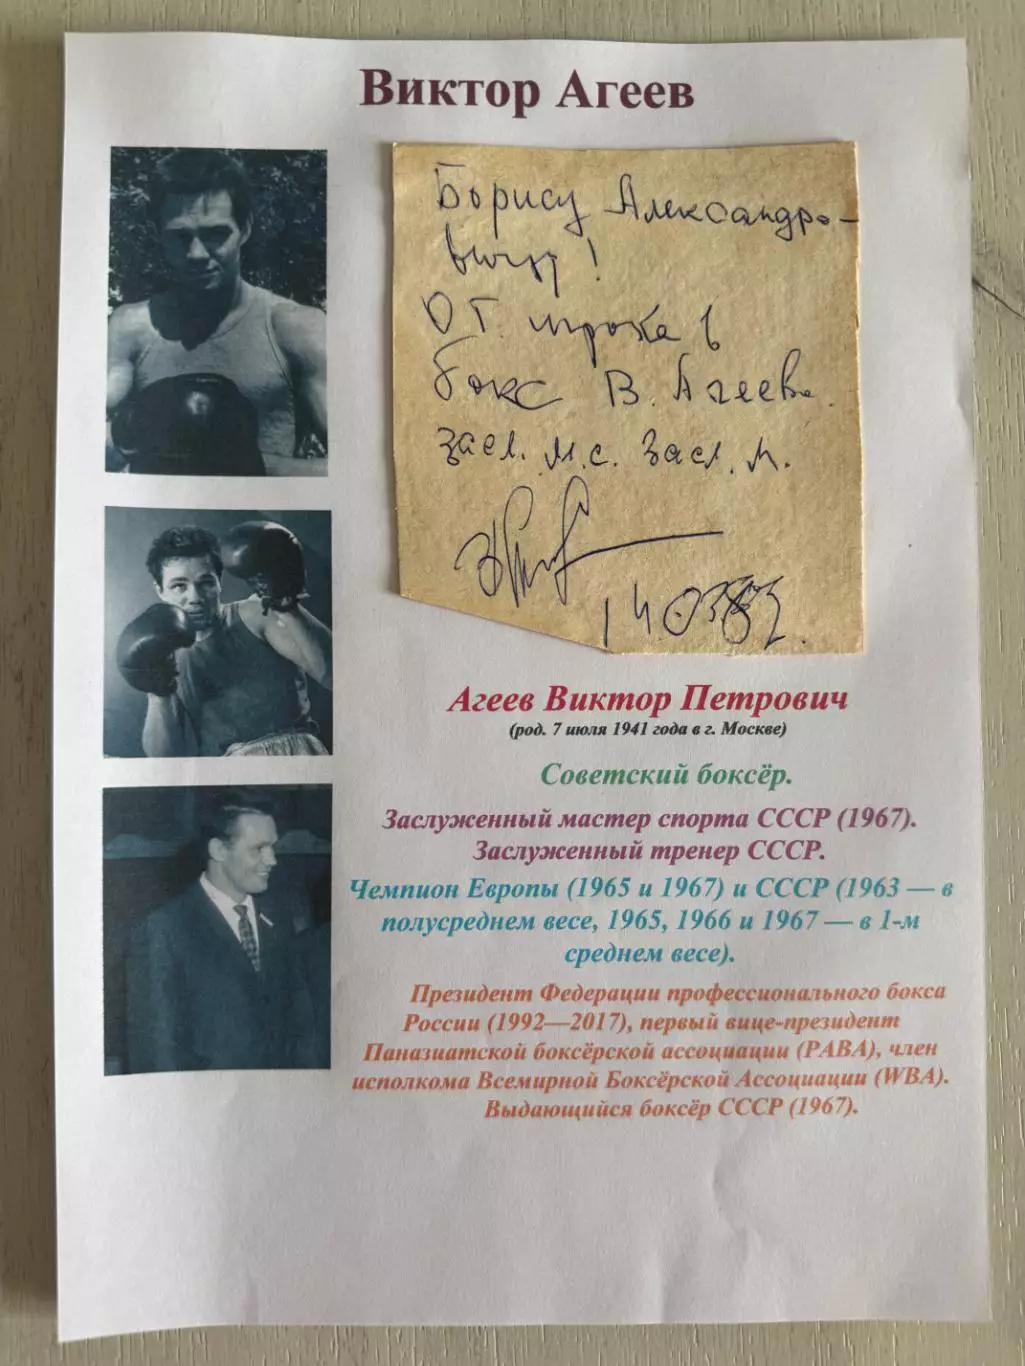 Виктор Агеев
Борису Александро-
вичу!
От игрока в
бокс В. Агеева.
засл. м.с. засл. м.
Агеев Виктор Петрович
(род. 7 июля 1941 года в г. Москве)
Советский боксёр.
Заслуженный мастер спорта СССР (1967).
Заслуженный тренер СССР.
Чемпион Европы (1965 и 1967) и СССР (1963 — в
полусреднем весе, 1965, 1966 и 1967 — в 1-м
среднем весе).
Президент Федерации профессионального бокса
России (1992—2017), первый вице-президент
Паназиатской боксёрской ассоциации (PABA), член
исполкома Всемирной Боксёрской Ассоциации (WBA).
Выдающийся боксёр СССР (1967).